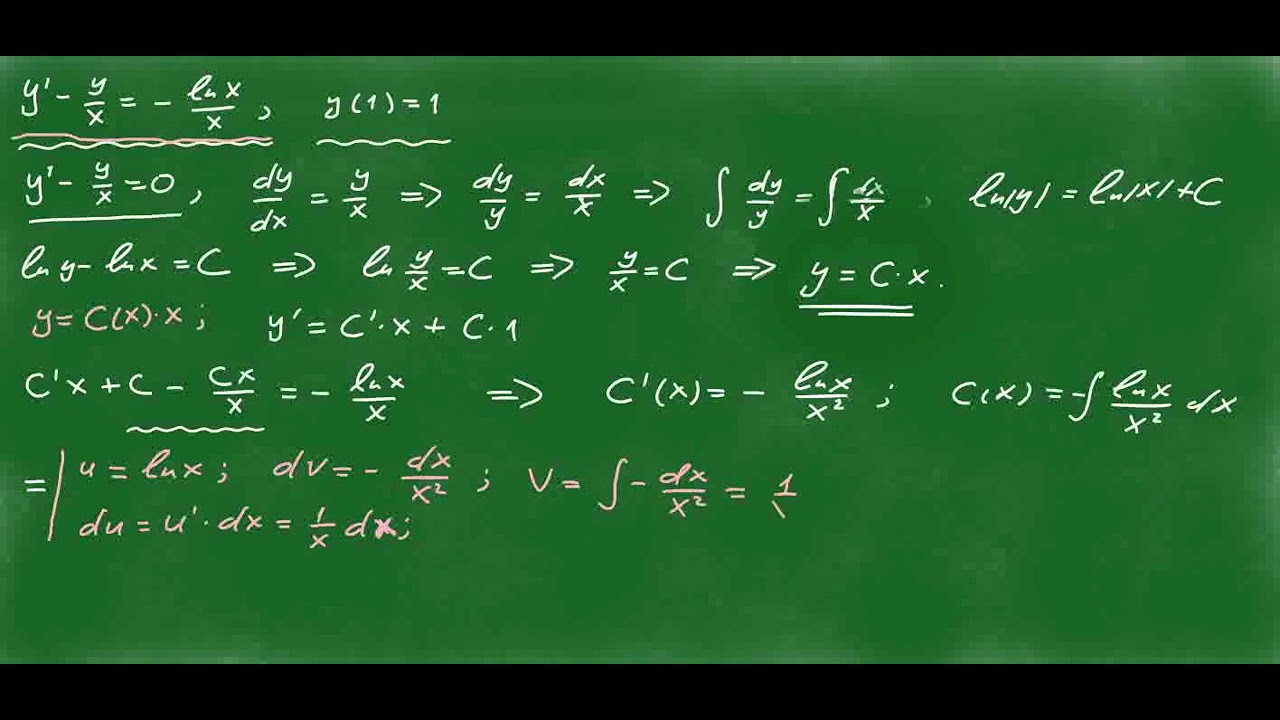 y' - y/x = - ln x/x, y(1) = 1
y' - y/x = 0, dy/dx = y/x => dy/y = dx/x => ∫ dy/y = ∫ dx/x, ln|y| = ln|x| + C
ln y - ln x = C => ln y/x = C => y/x = C => y = C·x.
y = C(x)·x; y' = C'·x + C·1
C'x + C - Cx/x = - ln x/x => C'(x) = - ln x/x²; C(x) = -∫ ln x/x² dx
= | u = ln x; dv = - dx/x²; V = ∫ - dx/x² = 1
du = u'·dx = 1/x dx;